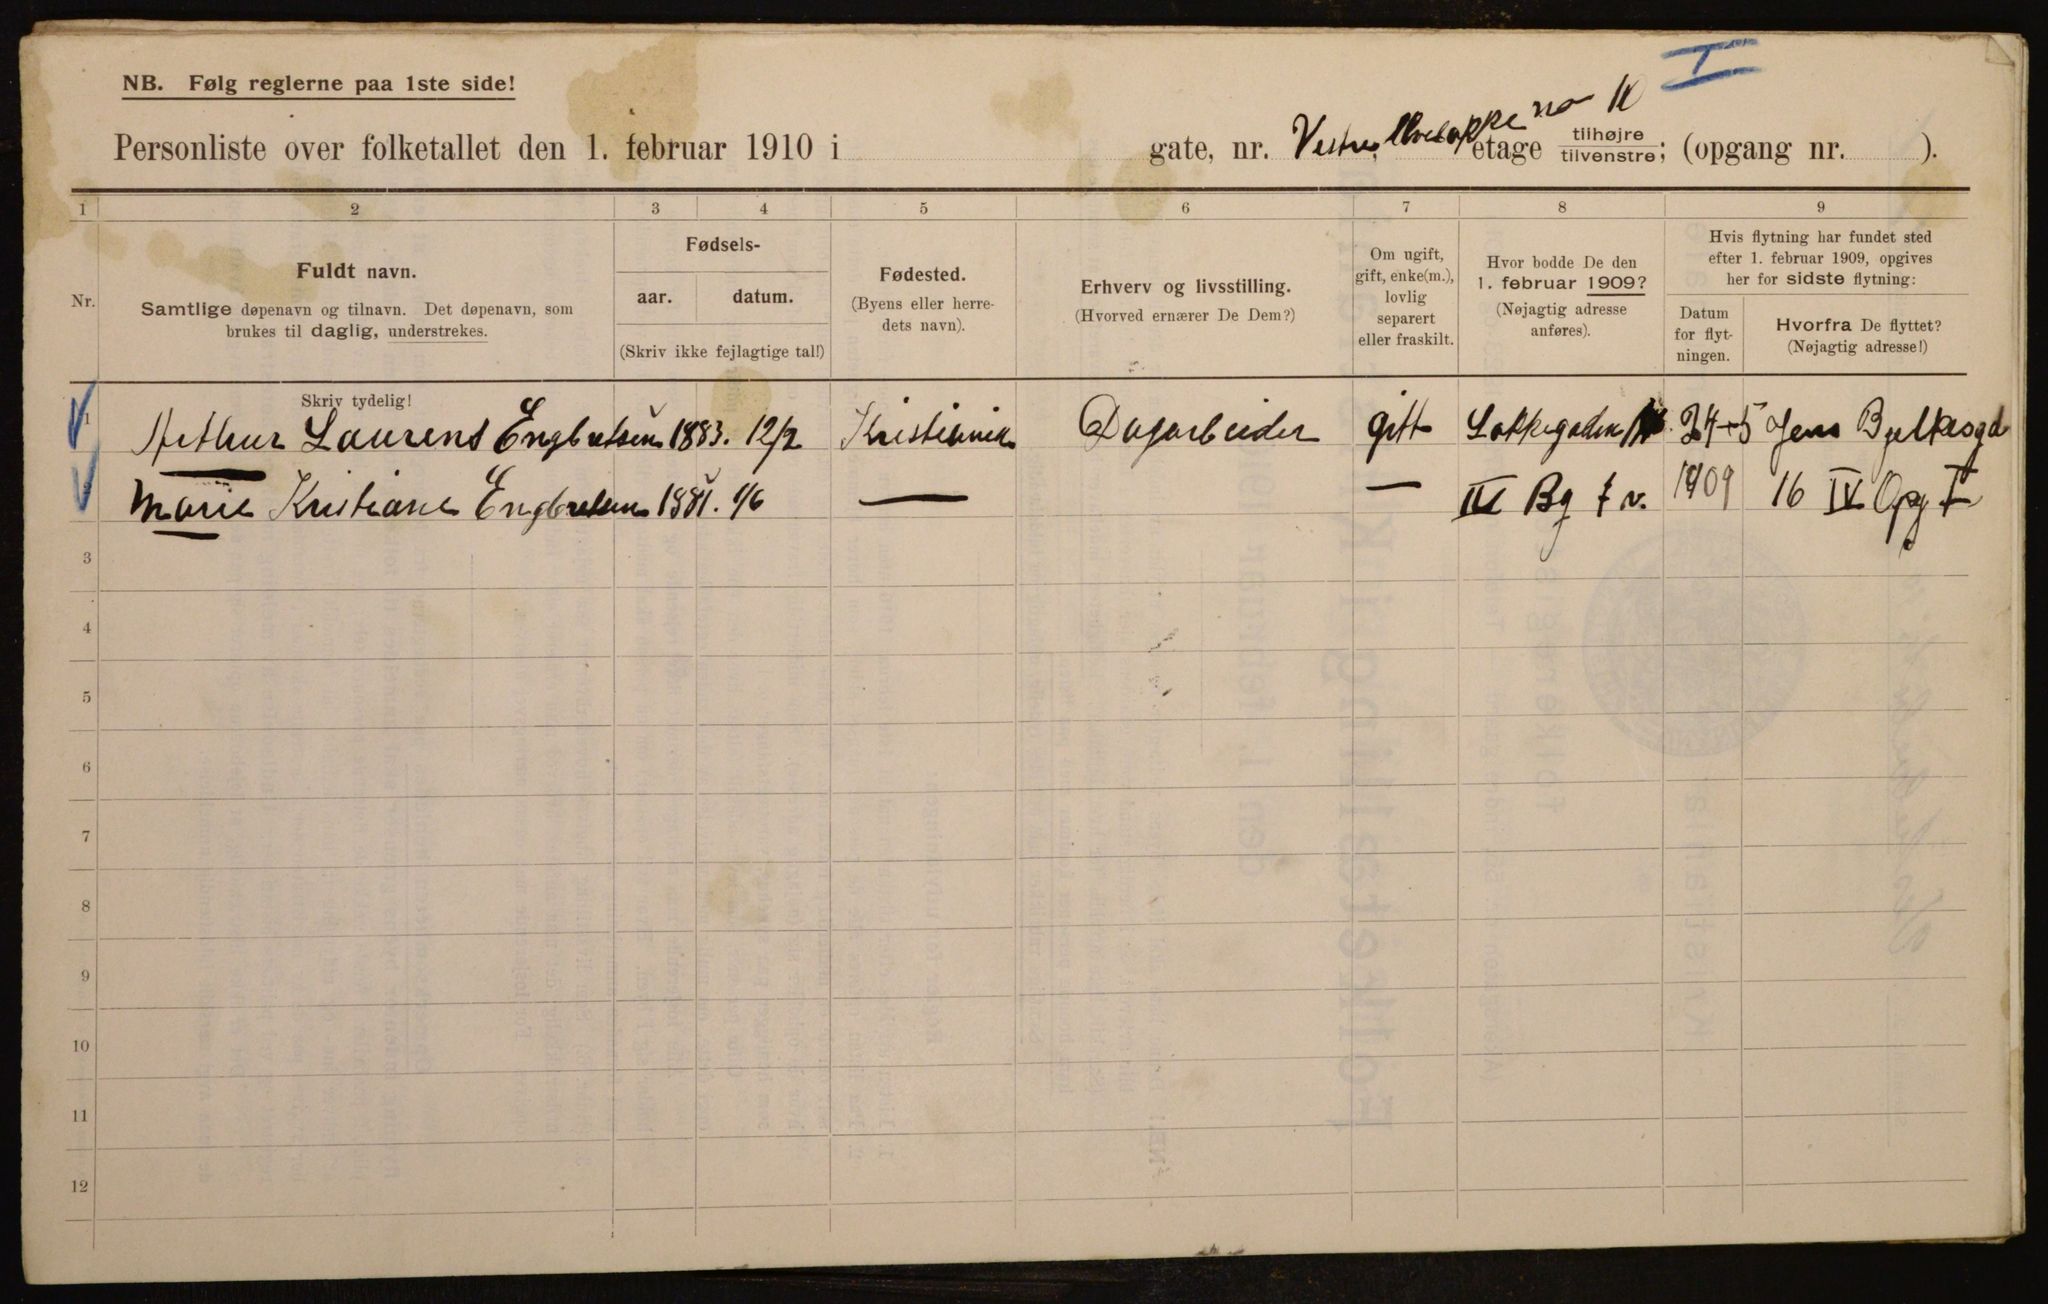 NB. Følg reglerne paa 1ste side!
I
Personliste over folketallet den 1. februar 1910 i gate, nr. Vestre Elveløkke no 10 etage tilhøjre/tilvenstre; (opgang nr. ).
1 2 3 4 5 6 7 8 9
Nr.
Fuldt navn.
Samtlige døpenavn og tilnavn. Det døpenavn, som
brukes til daglig, understrekes.
Fødsels-
aar. datum.
(Skriv ikke fejlagtige tal!)
Fødested.
(Byens eller herre-
dets navn).
Erhverv og livsstilling.
(Hvorved ernærer De Dem?)
Om ugift,
gift, enke(m.),
lovlig
separert
eller fraskilt.
Hvor bodde De den
1. februar 1909?
(Nøjagtig adresse
anføres).
Hvis flytning har fundet sted
efter 1. februar 1909, opgives
her for sidste flytning:
Datum
for flyt-
ningen.
Hvorfra De flyttet?
(Nøjagtig adresse!)
Skriv tydelig!
1 Arthur Laurens Engbretsen 1883. 12/2 Kristiania Dagarbeider gift Løkkegaden 24-5 Jens Bjelkesgd
2 Marie Kristiane Engbretsen 1881. 1/6 — — IV Bg t v. 1909 16 IV Opg I
3
4
5
6
7
8
9
10
11
12